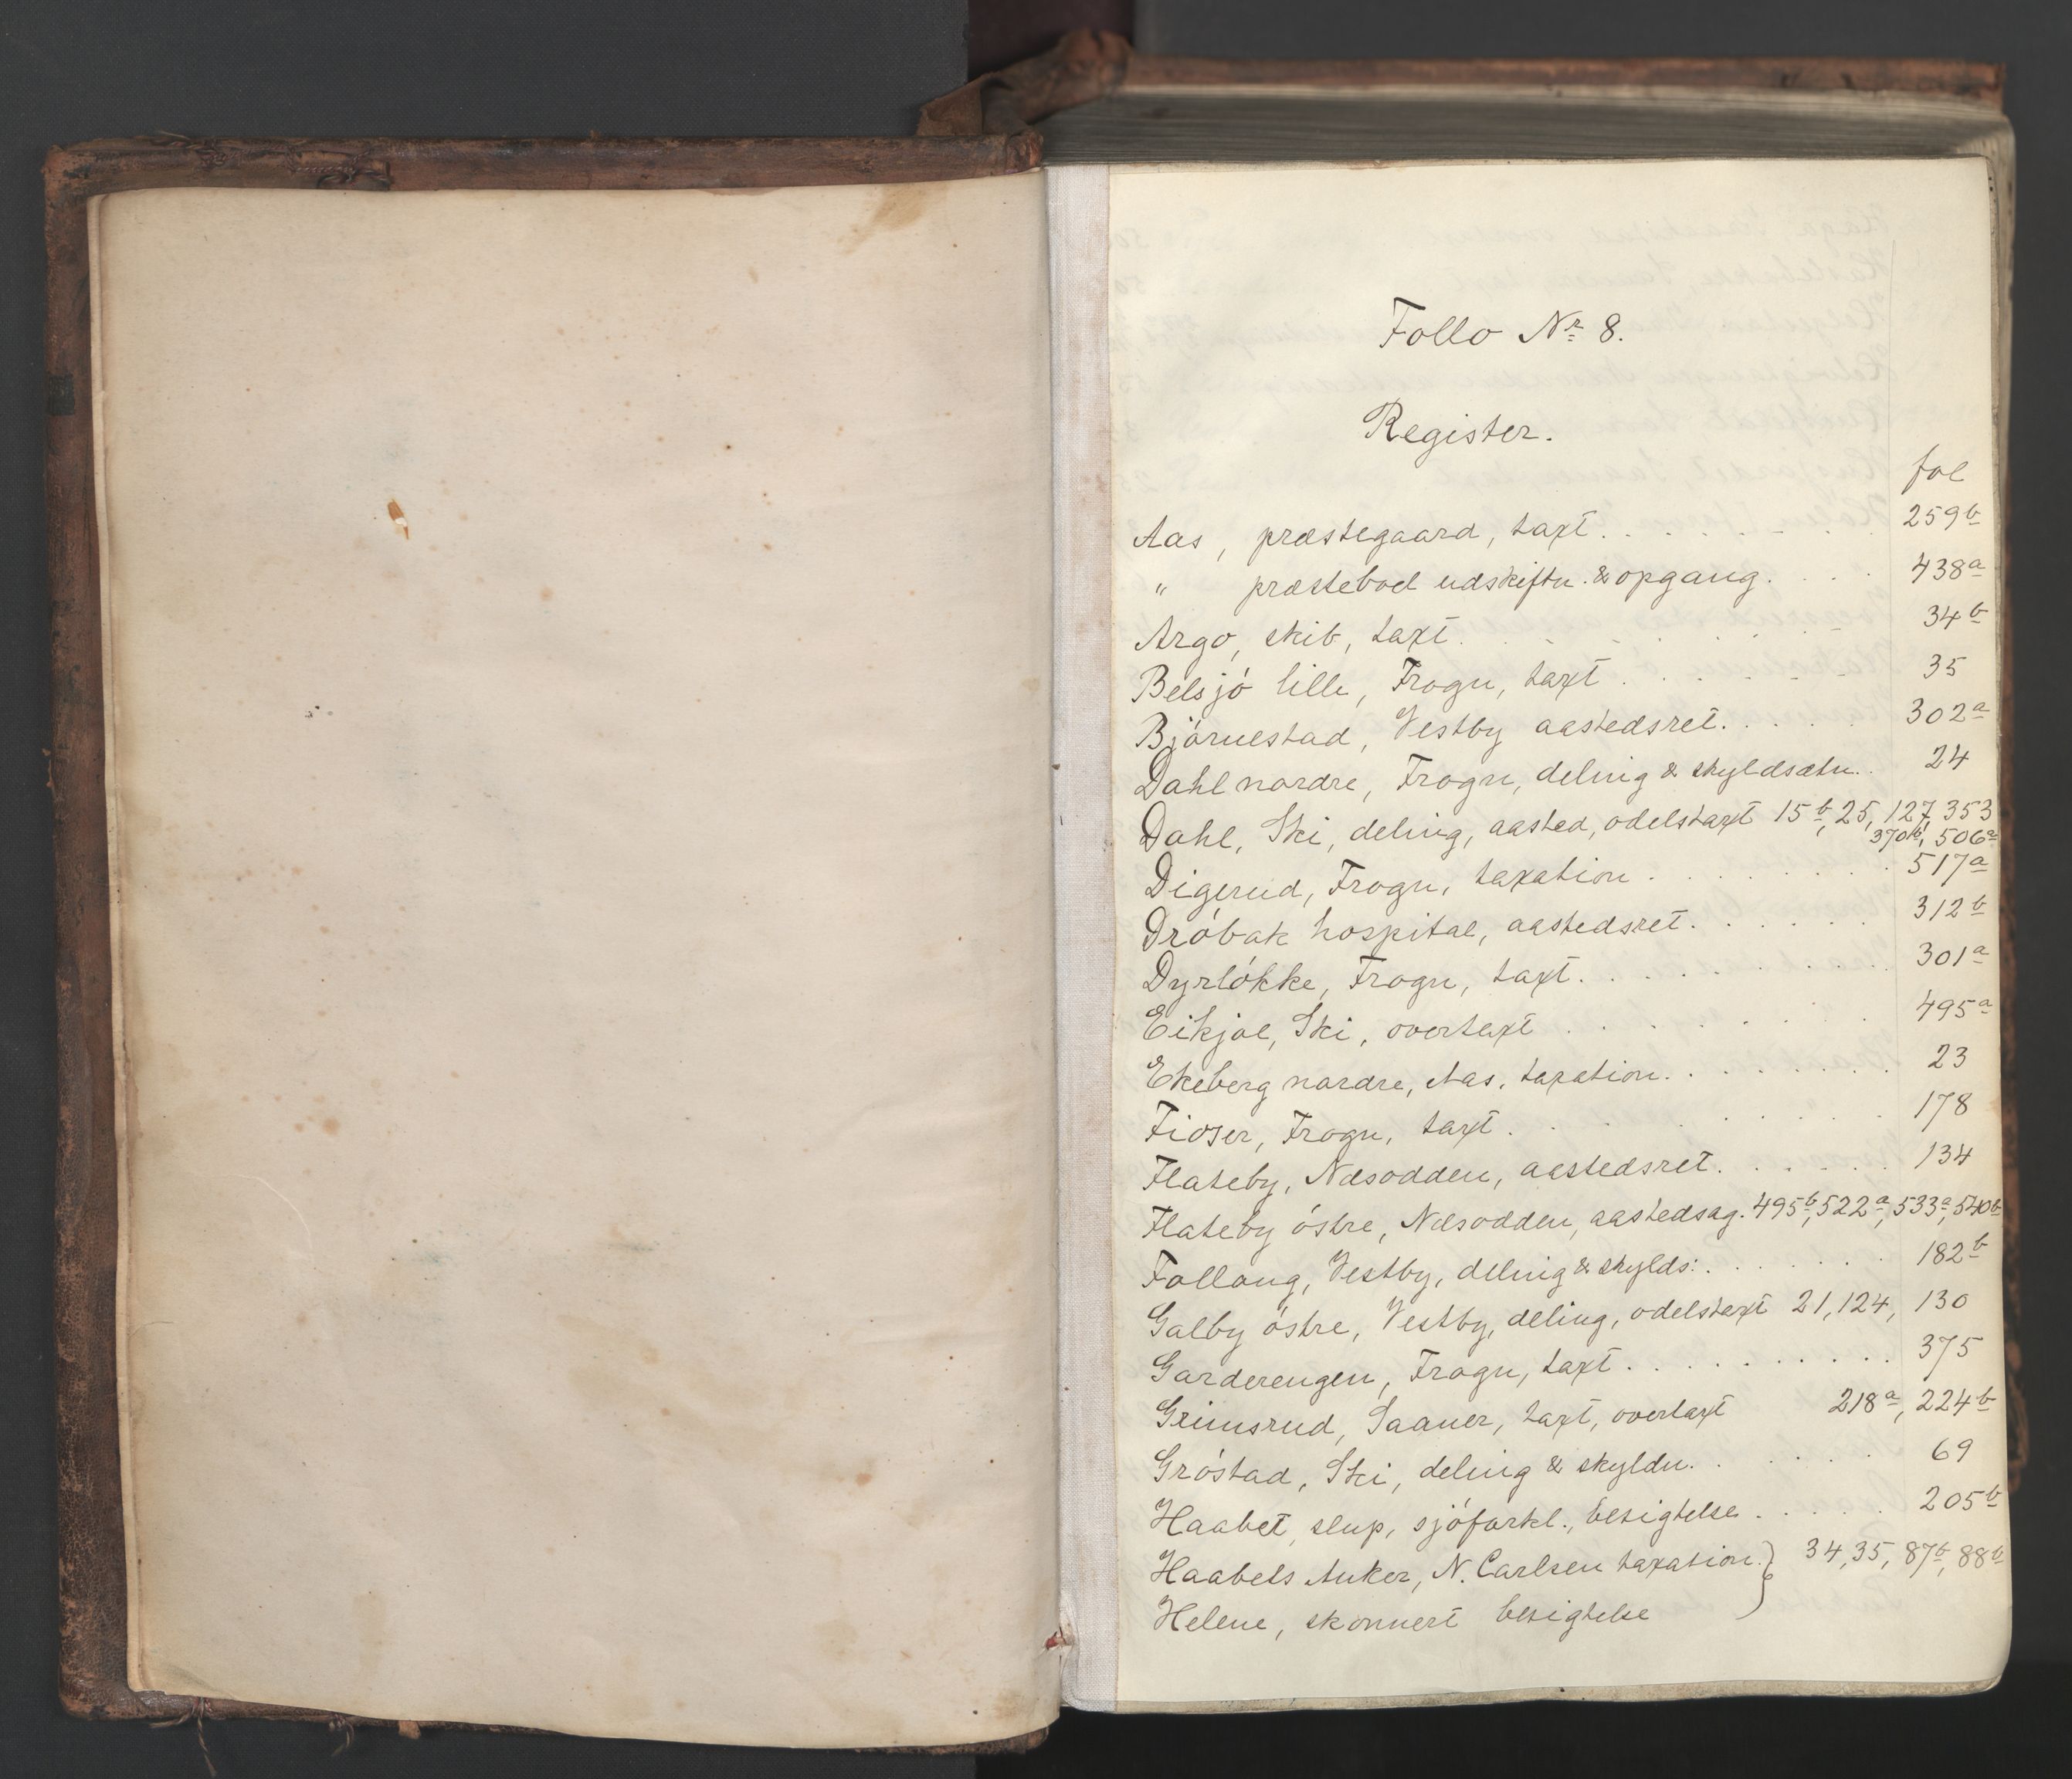 Follo Nr 8.
Register.
fol
Aas, præstegaard, taxt. . . . . . . 259b
" præstebol udskiftn. & opgang. . . . 438a
Argo, skib, taxt. . . . . . . . 34b
Belsjó lille, Frogn, taxt . . . . . . 35
Bjórnestad, Vestby aastedsret. . . . . 302a
Dahl nordre, Frogn, deling & skyldsætn. . 24
Dahl, Ski, deling, aasted, odelstaxt 15b, 25, 127, 353
370b, 506a
Digerud, Frogn, taxation . . . . . . . 517a
Dróbak hospital, aastedsret. . . . . . 312b
Dyrlókke, Frogn, taxt. . . . . . . . 301a
Eikjol, Ski, overtaxt . . . . . . . 495a
Ekeberg nordre, Aas, taxation. . . . . . . 23
Fioser, Frogn, taxt . . . . . . . 178
Flateby, Næsodden, aastedsret. . . . . . 134
Flateby óstre, Næsodden, aastedsag. 495b, 522a, 533a, 540b
Follaug, Vestby, deling & skylds: . . . . . . 182b
Galby óstre, Vestby, deling, odelstaxt 21, 124, 130
Garderengen, Frogn, taxt . . . . . . . . . . 375
Grimsrud, Saaner, taxt, overtaxt 218a, 224b
Gróstad, Ski, deling & skyldn. . . . . . 69
Haabet, slup, sjófarkl., besigtelse . . . . . 205b
Haabets Anker, N. Carlsen taxation. } 34, 35, 87b, 88b
Helene, skonnert besigtelse